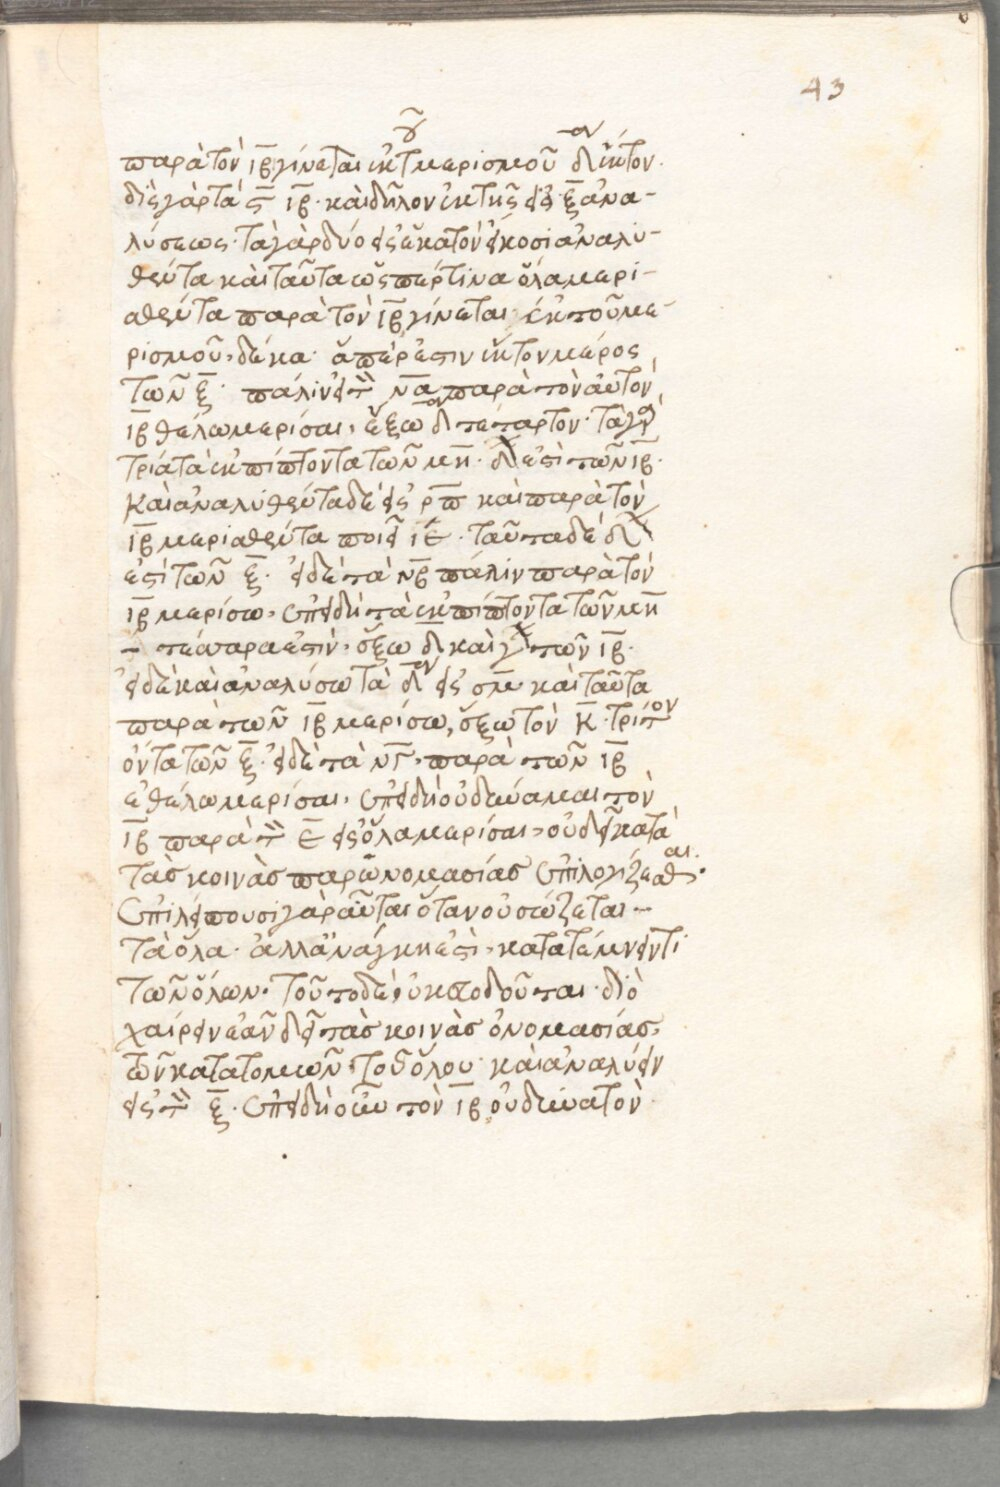 43
παρὰ τὸν ιβ γίνεται ἐκ τοῦ μερισμοῦ δ ον ἕκτον·
δὶς γὰρ τὰ ϛ ιβ· καὶ δῆλον ἐκ τῆς εἰς ξ ἀνα-
λύσεως· τὰ γὰρ δύο εἰς ἑκατὸν εἴκοσι ἀναλυ-
θέντα καὶ ταῦτα ὥσπερ τινα ὅλα μερι-
σθέντα παρὰ τὸν ιβ γίνεται ἐκ τοῦ με-
ρισμοῦ, δέκα· ἅπερ ἐστιν ἕκτον μέρος
τῶν ξ· πάλιν εἰ τὰ να παρὰ τὸν αὐτὸν
ιβ θέλω μερίσαι, ἕξω δ τέταρτον· τὰ γὰρ
τρία τὰ ἐκπίπτοντα τῶν μη δ ἐστὶ τῶν ιβ·
καὶ ἀναλυθέντα δὲ εἰς ρπ καὶ παρὰ τὸν
ιβ μερισθέντα ποιεῖ ιε· ταῦτα δὲ δ
ἐστὶ τῶν ξ· εἰ δὲ τὰ νβ πάλιν παρὰ τὸν
ιβ μερίσω, ἐπειδὴ τὰ ἐκπίπτοντα τῶν μη
τέσσαρα ἐστὶν, ἕξω δ καὶ γ τῶν ιβ·
εἰ δὲ καὶ ἀναλύσω τὰ δ εἰς σμ καὶ ταῦτα
παρὰ τῶν ιβ μερίσω, ἕξω τὸν κ· τρίτον
ὄντα τῶν ξ· εἰ δὲ τὰ νγ, παρὰ τῶν ιβ
ἐθέλω μερίσαι, ἐπειδὴ οὐ δύναμαι τὸν
ιβ παρὰ τὰ ε εἰς ὅλα μερίσαι, οὐ δεῖ κατὰ
τὰς κοινὰς παρωνομασίας ἐπιλογίζεσθαι·
ἐπιλείπουσι γὰρ αὗται ὅταν οὐ σώζεται
τὰ ὅλα· ἀλλ' ἀνάγκη ἐστὶ, κατατέμνεντι
τῶν ὅλων· τοῦτο δὲ οὐκ ἀποδοῦται· διὸ
χαίρειν ἐᾶν δεῖ τὰς κοινὰς ὀνομασίας,
τῶν κατατομῶν τοῦ ὅλου· καὶ ἀναλύειν
εἰς τὰ ξ· ἐπειδὴ οὖν τὸν ιβ οὐ δυνατὸν